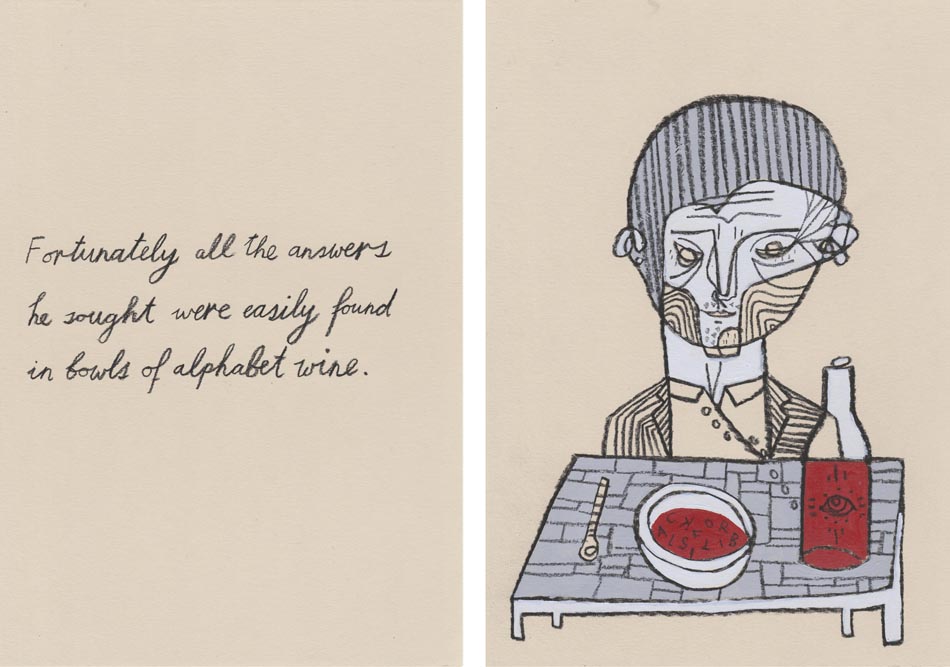 Fortunately all the answers
he sought were easily found
in bowls of alphabet wine.